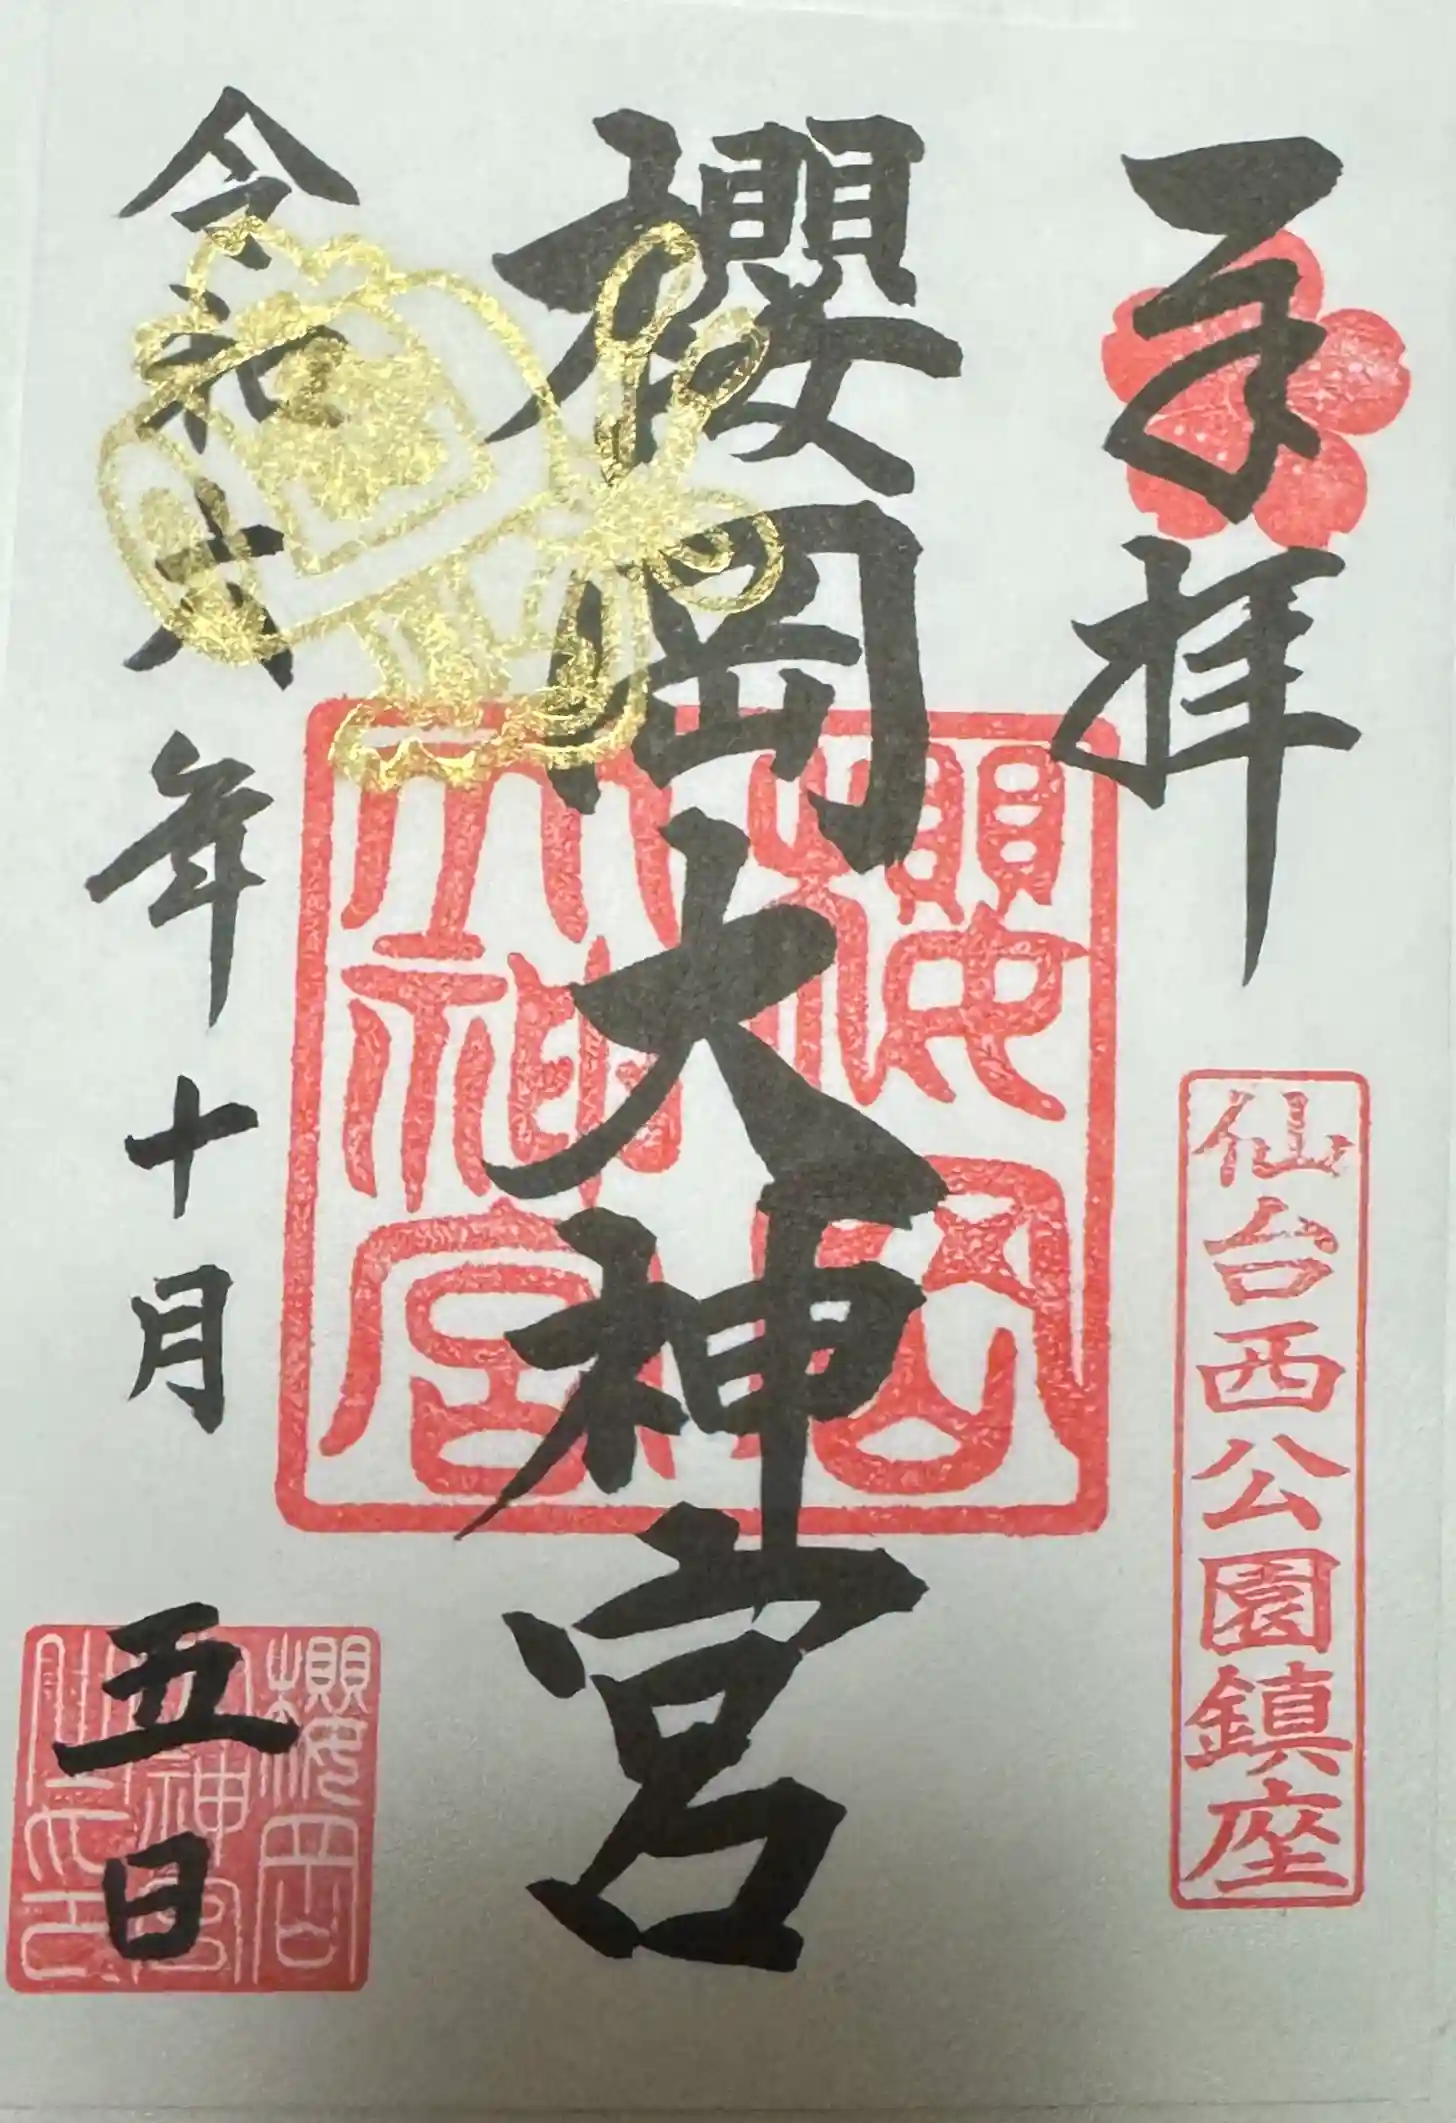 奉拝
仙台西公園鎮座
櫻岡大神宮
櫻岡
大神宮
令和六年十月五日
櫻岡
大神宮